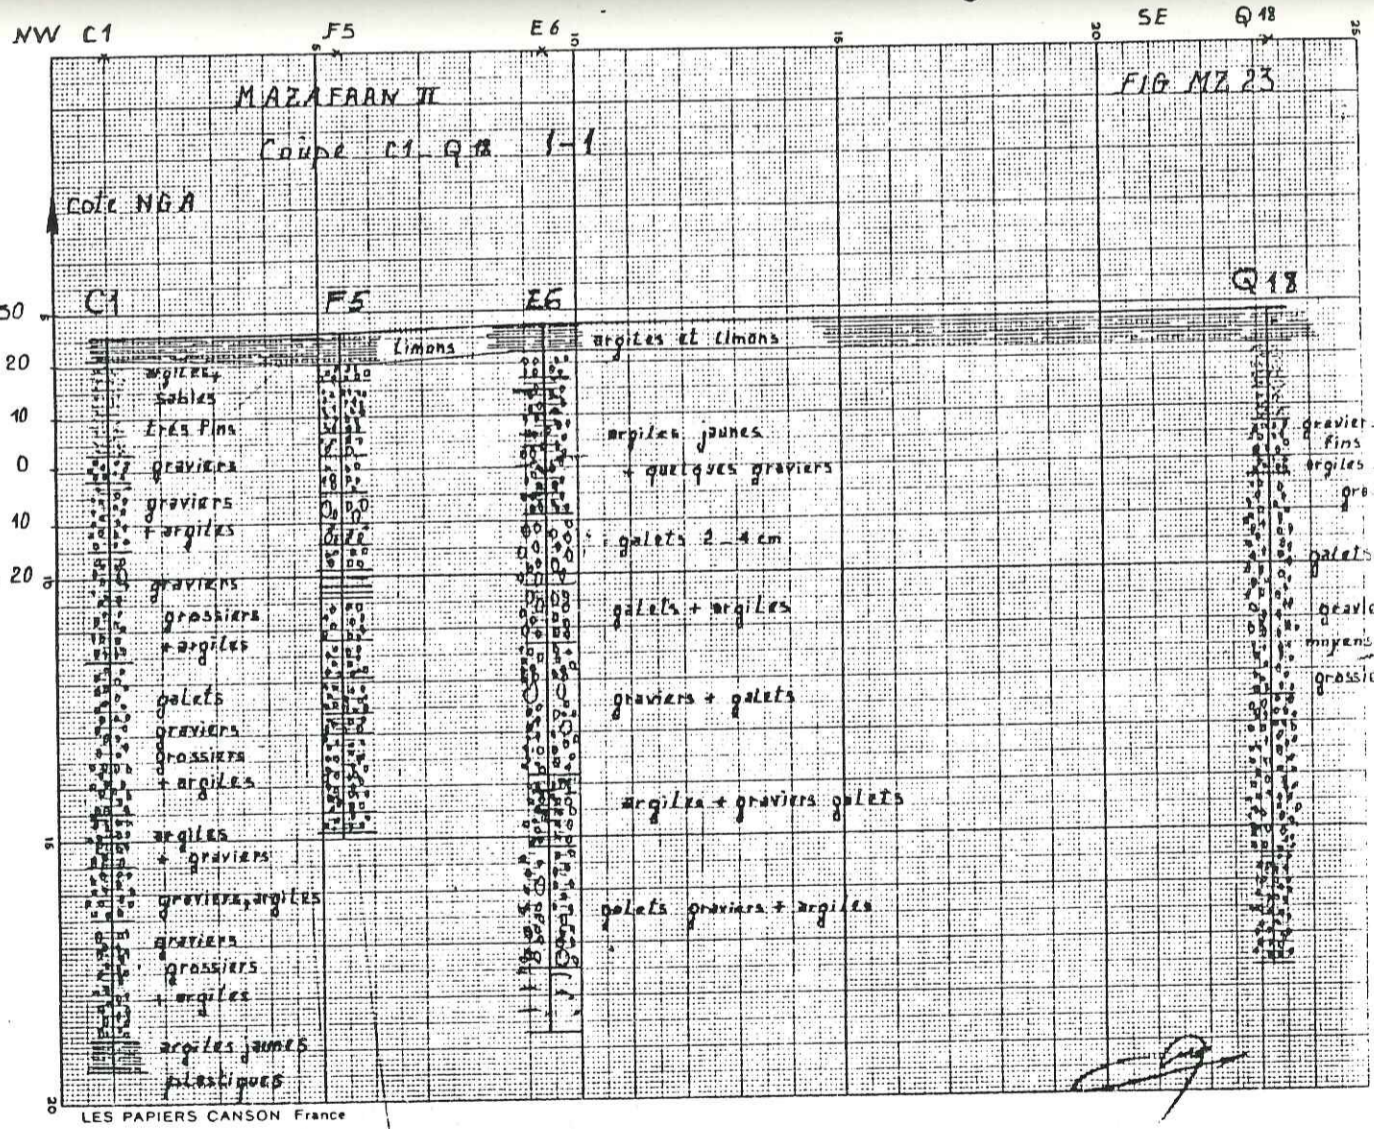 NW C1 F5 E6 SE Q18
5 10 15 20 25
MAZAFRAN II
FIG MZ 23
Coupe C1_Q18 1-1
cote NGA
C1 F5 E6 Q18
Limons
argiles et limons
20
10
0
10
20
argiles,
sables
très fins
graviers
graviers
+ argiles
graviers
grossiers
+ argiles
galets
graviers
grossiers
+ argiles
argiles
+ graviers
graviers, argiles
graviers
grossiers
+ argiles
argiles jaunes
plastiques
argiles jaunes
+ quelques graviers
galets 2_4 cm
galets + argiles
graviers + galets
argiles + graviers galets
galets graviers + argiles
gravier
fins
argiles
gra
galets
gravie
moyens
grossie
15
20
LES PAPIERS CANSON France